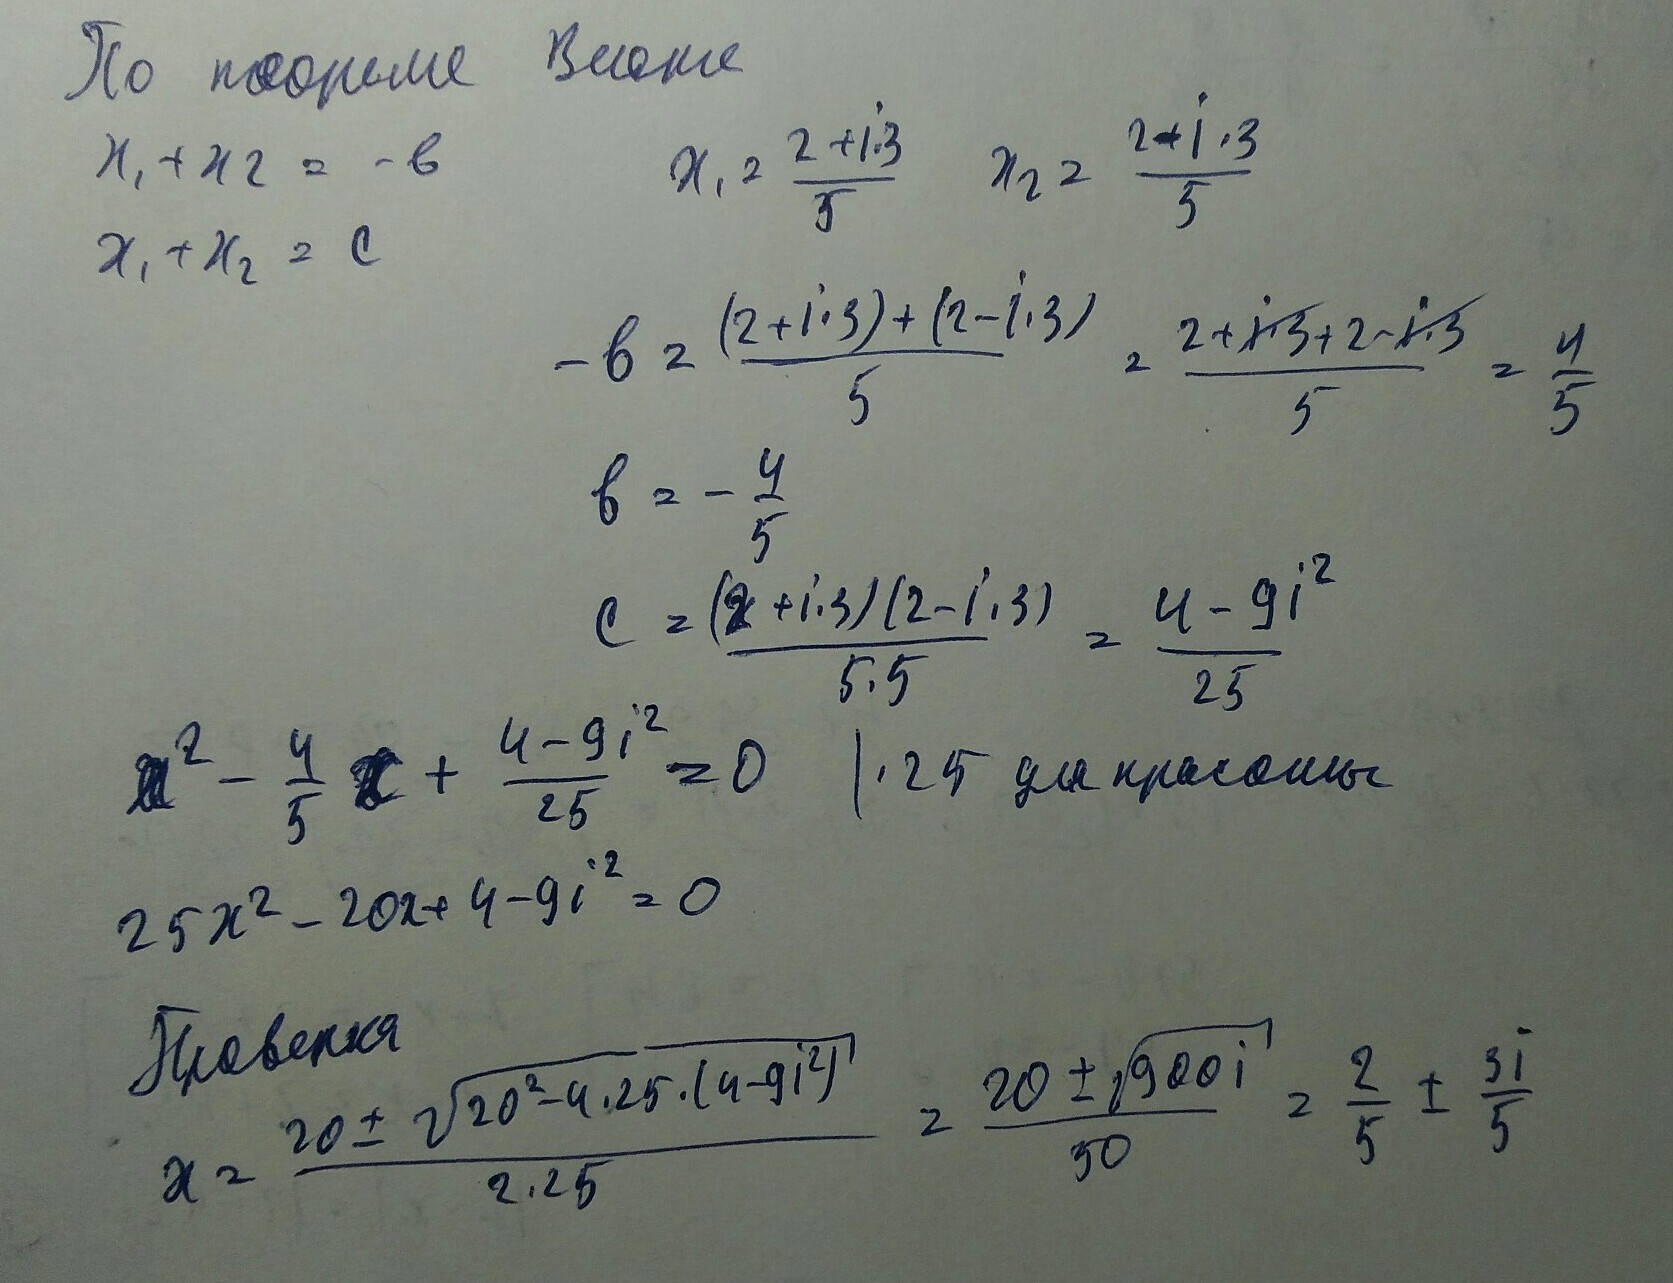 По теореме Виета
x₁ + x2 = -b
x₁ = (2+i·3)/5 x₂ = (2+i·3)/5
x₁ + x₂ = c
-b = ((2+i·3)+(2-i·3))/5 = (2+i·3+2-i·3)/5 = 4/5
b = -4/5
c = ((2+i·3)(2-i·3))/(5·5) = (4-9i²)/25
x² - 4/5 x + (4-9i²)/25 = 0 |·25 для красоты
25x² - 20x + 4 - 9i² = 0
Проверка
x = (20 ± √(20²-4·25·(4-9i²)))/(2·25) = (20 ± √(900i))/50 = 2/5 ± 3i/5